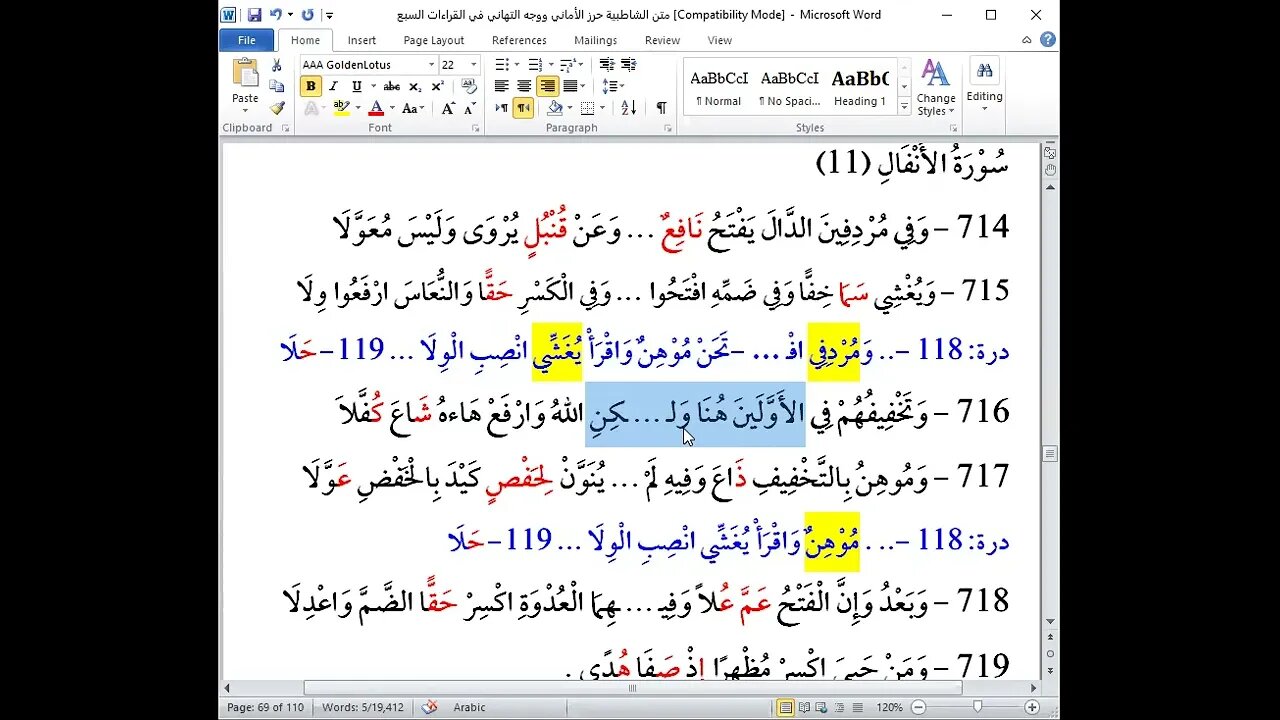 متن الشاطبية حرز الأماني ووجه التهاني في القراءات السبع [Compatibility Mode] - Microsoft Word
File Home Insert Page Layout References Mailings Review View
AAA GoldenLotus 22
Paste
B I U abc x₂ x²
A ab A Aa A A
AaBbCcI AaBbCcI AaBbC
¶ Normal ¶ No Spaci... Heading 1
Change Styles
Editing
Clipboard Font Paragraph Styles
سُوْرَةُ الأَنْفَالِ (11)
714 – وَفِي مُرْدِفِينَ الدَّالَ يَفْتَحُ نَافِعٌ ... وَعَنْ قُنْبُلٍ يُرْوَى وَلَيْسَ مُعَوَّلَا
715 – وَيُغْشِي سَمَا خِفًّا وَفِي ضَمِّهِ افْتَحُوا ... وَفِي الْكَسْرِ حَقًّا وَالنُّعَاسَ ارْفَعُوا وِلَا
درة: 118 –.. وَمُرْدِفِي افْـ ... –تَحَنْ مُوْهِنٌ وَاقْرَأْ يُغَشِّي انْصِبِ الْوِلَا ... 119– حَلَا
716 – وَتَخْفِيفُهُمْ فِي الأَوَّلَينَ هُنَا وَلـ ... ـكِنِ اللهُ وَارْفَعْ هَاءهُ شَاعَ كُفَّلاَ
717 – وَمُوهِنُ بِالتَّخْفِيفِ ذَاعَ وَفِيهِ لَمْ ... يُنَوَّنْ لِحَفْصٍ كَيْدَ بِالْخَفْضِ عَوَّلَا
درة: 118 –.. . مُوْهِنٌ وَاقْرَأْ يُغَشِّي انْصِبِ الْوِلَا ... 119– حَلَا
718 – وَبَعْدُ وَإِنَّ الْفَتْحُ عَمَّ عُلاً وَفِيـ ... ـهِمَا الْعُدْوَةِ اكْسِرْ حَقًّا الضَّمَّ وَاعْدِلَا
719 – وَمَنْ حَيِيَ اكْسِرْ مُظْهِرًا إِذْ صَفَا هُدًى .
Page: 69 of 110 Words: 5/19,412 Arabic 120%